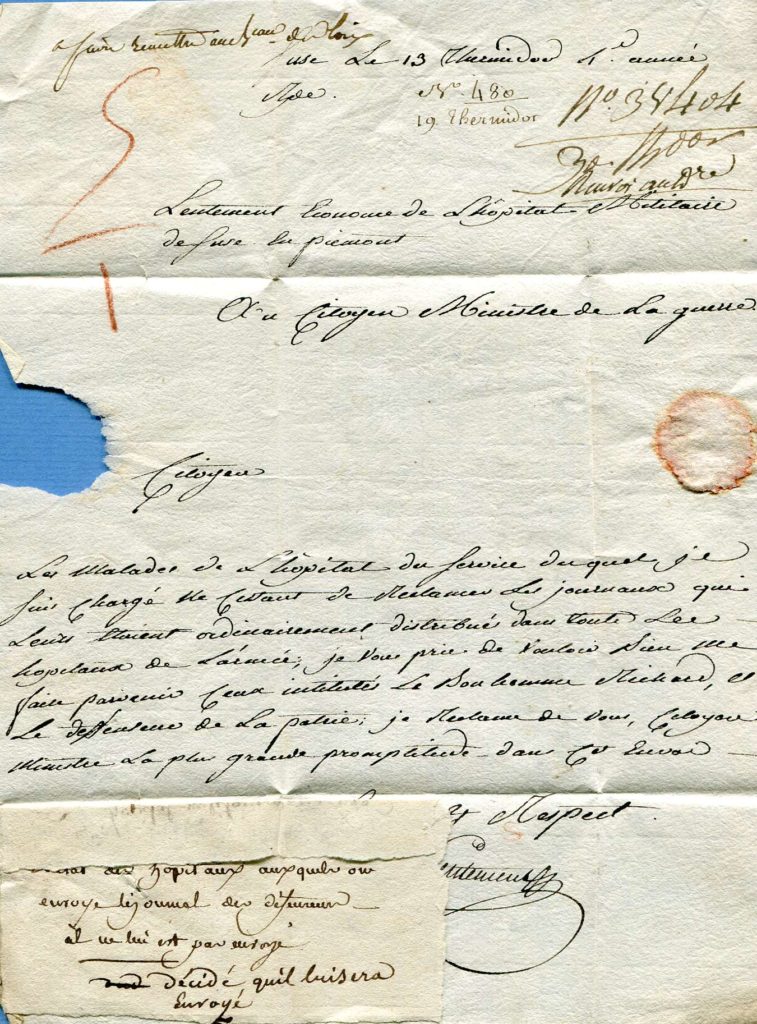 a faire remettre au Beau de Loix
Suse Le 13 Thermidor 4e. année
Rçue.
No. 480
19 Thermidor
No. 38404
Renvoi au
Lentement Econome de L'hôpital Militaire
de Suse en piemont
Au Citoyen Ministre de La guerre.
Citoyen
Les Malades de L'hôpital du Service duquel je
suis Chargé Ne Cessant de Réclamer Les journaux qui
Leurs étoient ordinairement distribués dans toute Les
hopitaux de L'armée; je vous prie de Vouloir Bien me
faire parvenir Ceux intitulés Le Bonhomme Richard, et
Le deffenseur de La patrie; je Réclame de Vous, Citoyen
Ministre La plus grande promptitude dans Cet Envoi
Respect.
Lentement
des hopitaux auxquels on
envoye le journal des défenseurs
il ne lui est pas envoyé
décidé quil lui sera
Envoyé